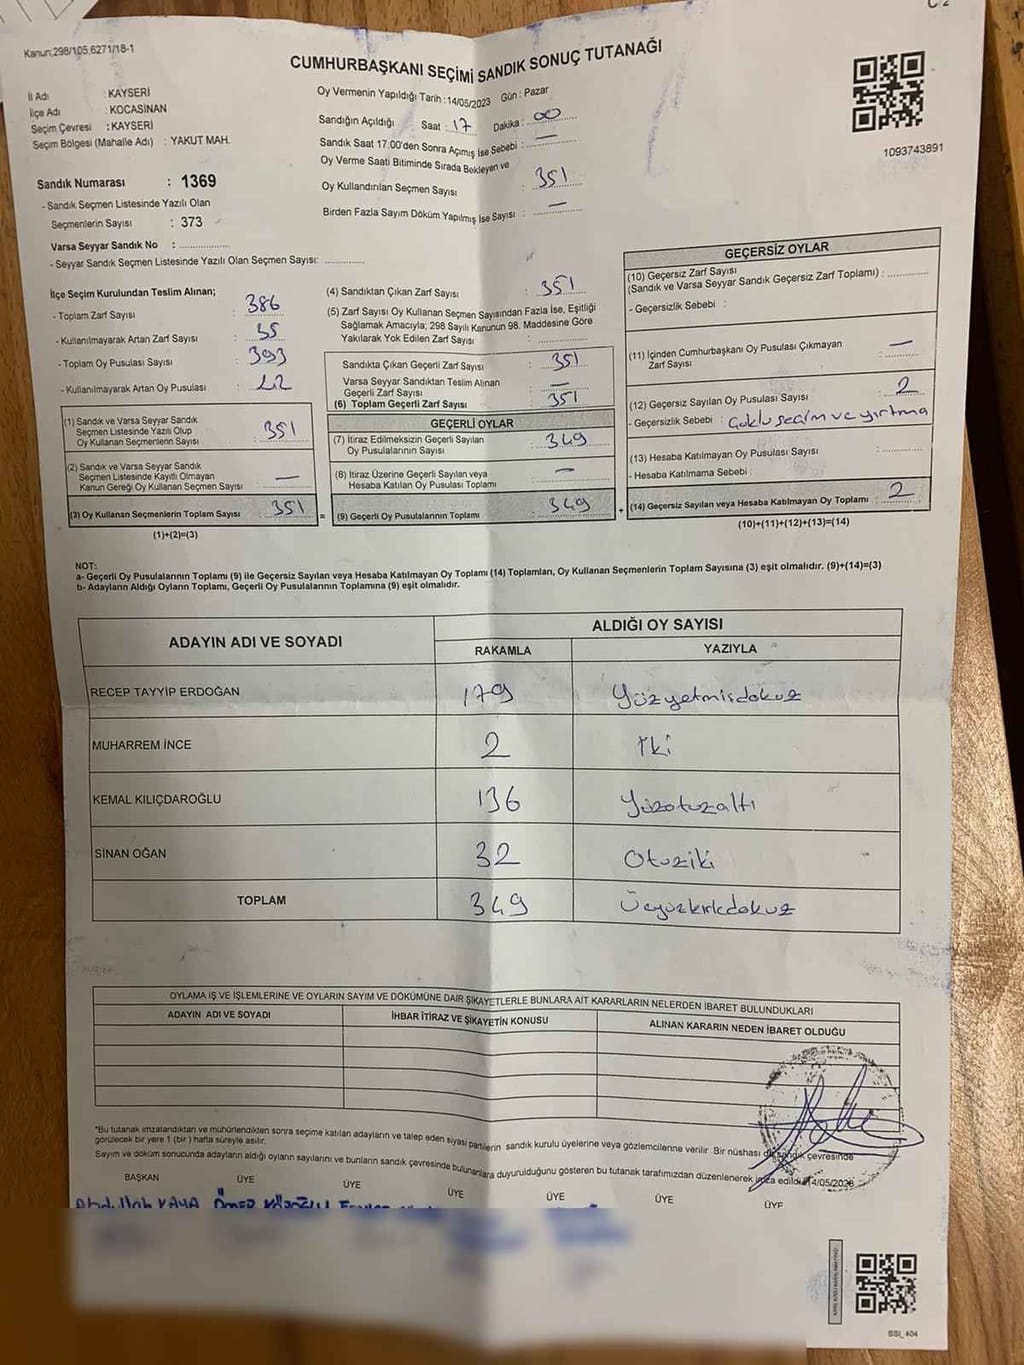 Kanun;298/105,6271/18-1
CUMHURBAŞKANI SEÇİMİ SANDIK SONUÇ TUTANAĞI
İl Adı : KAYSERİ
İlçe Adı : KOCASİNAN
Seçim Çevresi : KAYSERİ
Seçim Bölgesi (Mahalle Adı) : YAKUT MAH.
Sandık Numarası : 1369
- Sandık Seçmen Listesinde Yazılı Olan
Seçmenlerin Sayısı : 373
Varsa Seyyar Sandık No : ................
- Seyyar Sandık Seçmen Listesinde Yazılı Olan Seçmen Sayısı: ............
Oy Vermenin Yapıldığı Tarih :14/05/2023 Gün : Pazar
Sandığın Açıldığı Saat : 17 Dakika : 00
Sandık Saat 17:00'den Sonra Açmış İse Sebebi : —
Oy Verme Saati Bitiminde Sırada Bekleyen ve
Oy Kullandırılan Seçmen Sayısı : 351
Birden Fazla Sayım Döküm Yapılmış İse Sayısı : —
1093743891
İlçe Seçim Kurulundan Teslim Alınan;
- Toplam Zarf Sayısı : 386
- Kullanılmayarak Artan Zarf Sayısı : 35
- Toplam Oy Pusulası Sayısı : 393
- Kullanılmayarak Artan Oy Pusulası : 42
(1) Sandık ve Varsa Seyyar Sandık
Seçmen Listesinde Yazılı Olup
Oy Kullanan Seçmenlerin Sayısı : 351
(2) Sandık ve Varsa Seyyar Sandık
Seçmen Listesinde Kayıtlı Olmayan
Kanun Gereği Oy Kullanan Seçmen Sayısı : —
(3) Oy Kullanan Seçmenlerin Toplam Sayısı : 351 =
(1)+(2)=(3)
(4) Sandıktan Çıkan Zarf Sayısı : 351
(5) Zarf Sayısı Oy Kullanan Seçmen Sayısından Fazla İse, Eşitliği
Sağlamak Amacıyla; 298 Sayılı Kanunun 98. Maddesine Göre
Yakılarak Yok Edilen Zarf Sayısı : ............
Sandıkta Çıkan Geçerli Zarf Sayısı : 351
Varsa Seyyar Sandıktan Teslim Alınan
Geçerli Zarf Sayısı : —
(6) Toplam Geçerli Zarf Sayısı : 351
GEÇERLİ OYLAR
(7) İtiraz Edilmeksizin Geçerli Sayılan
Oy Pusulalarının Sayısı : 349
(8) İtiraz Üzerine Geçerli Sayılan veya
Hesaba Katılan Oy Pusulası Toplamı : —
(9) Geçerli Oy Pusulalarının Toplamı : 349 +
GEÇERSİZ OYLAR
(10) Geçersiz Zarf Sayısı
(Sandık ve Varsa Seyyar Sandık Geçersiz Zarf Toplamı) : ............
- Geçersizlik Sebebi :
(11) İçinden Cumhurbaşkanı Oy Pusulası Çıkmayan
Zarf Sayısı : —
(12) Geçersiz Sayılan Oy Pusulası Sayısı : 2
- Geçersizlik Sebebi : Çoklu seçim ve yırtma
(13) Hesaba Katılmayan Oy Pusulası Sayısı : ............
- Hesaba Katılmama Sebebi :
(14) Geçersiz Sayılan veya Hesaba Katılmayan Oy Toplamı : 2
(10)+(11)+(12)+(13)=(14)
NOT:
a- Geçerli Oy Pusulalarının Toplamı (9) ile Geçersiz Sayılan veya Hesaba Katılmayan Oy Toplamı (14) Toplamları, Oy Kullanan Seçmenlerin Toplam Sayısına (3) eşit olmalıdır. (9)+(14)=(3)
b- Adayların Aldığı Oyların Toplamı, Geçerli Oy Pusulalarının Toplamına (9) eşit olmalıdır.
ADAYIN ADI VE SOYADI ALDIĞI OY SAYISI
RAKAMLA YAZIYLA
RECEP TAYYİP ERDOĞAN 179 Yüzyetmişdokuz
MUHARREM İNCE 2 İki
KEMAL KILIÇDAROĞLU 136 Yüzotuzaltı
SİNAN OĞAN 32 Otuziki
TOPLAM 349 Üçyüzkırkdokuz
OYLAMA İŞ VE İŞLEMLERİNE VE OYLARIN SAYIM VE DÖKÜMÜNE DAİR ŞİKAYETLERLE BUNLARA AİT KARARLARIN NELERDEN İBARET BULUNDUKLARI
ADAYIN ADI VE SOYADI İHBAR İTİRAZ VE ŞİKAYETİN KONUSU ALINAN KARARIN NEDEN İBARET OLDUĞU
*Bu tutanak imzalandıktan ve mühürlendikten sonra seçime katılan adayların ve talep eden siyasi partilerin sandık kurulu üyelerine veya gözlemcilerine verilir. Bir nüshası da sandık çevresinde
görülecek bir yere 1 (bir) hafta süreyle asılır.
Sayım ve döküm sonucunda adayların aldığı oyların sayılarını ve bunların sandık çevresinde bulunanlara duyurulduğunu gösteren bu tutanak tarafımızdan düzenlenerek imza edildi. 14/05/2023
BAŞKAN ÜYE ÜYE ÜYE ÜYE ÜYE ÜYE
Abdullah KAYA ÖMER KÖROĞLU
SSI_404